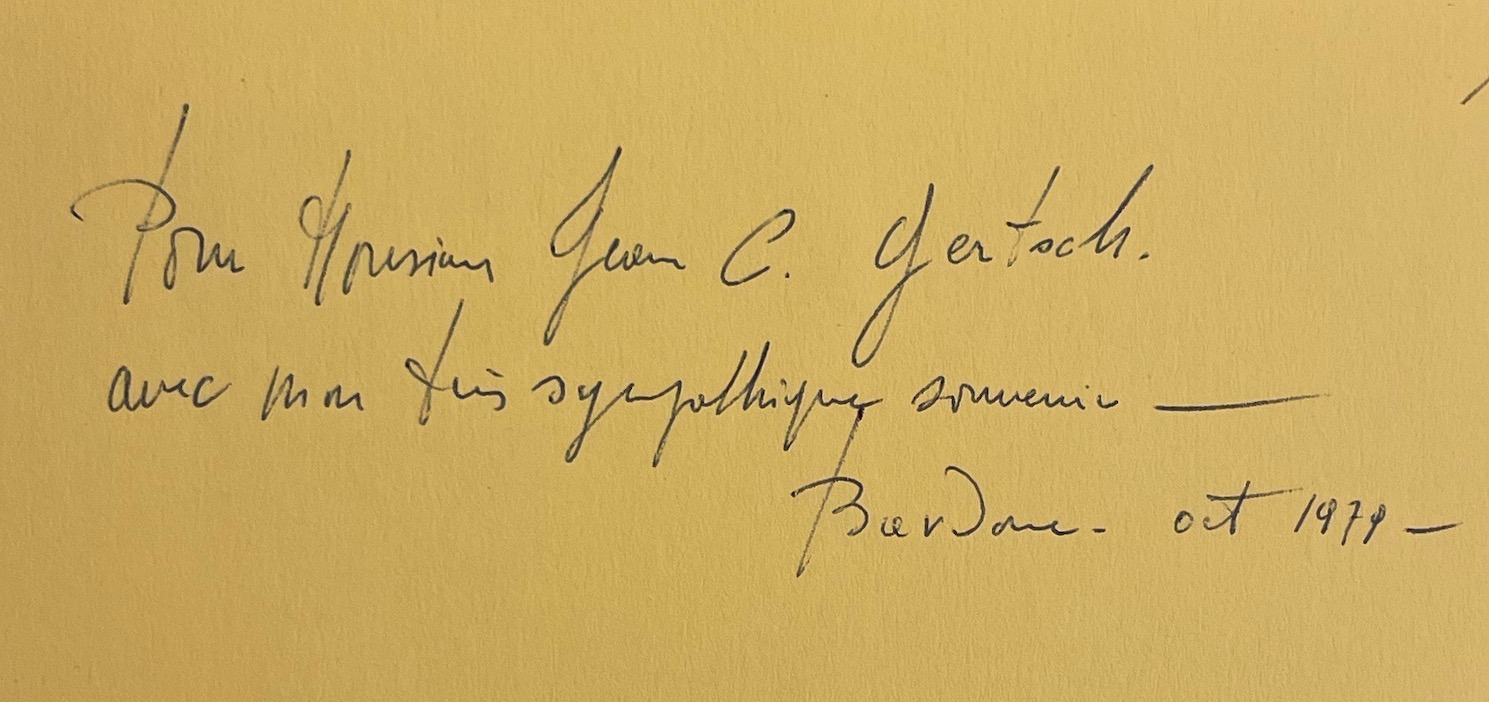 Pour Monsieur Jean C. Gertsch.
avec mon très sympathique souvenir —
Bardone - oct 1979 -